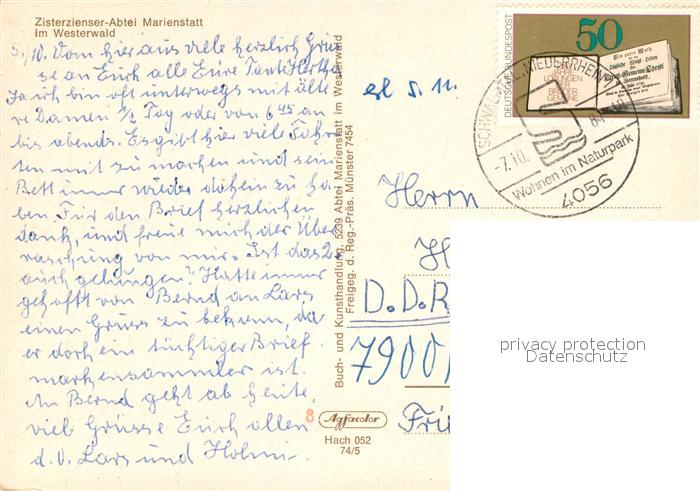 Zisterzienser-Abtei Marienstatt
im Westerwald
5./10. Vom hier aus viele herzlich Grüs
se an Euch alle Eure Tante Hertha
Ja ich bin oft unterwegs mit älte
re Damen 1/2 Tag oder von 6 45 an
bis abends. Es gibt hier viele Fahr
ten mit zu machen und sein
Bett immer wieder daheim zu ha
ben. Für den Brief herzlichen
dank, und freue mich der Über
raschung von mir. Ist das 2te
auch gelungen? Hatte immer
gehofft von Bernd an Lars
einen Gruss zu bekom, da
er doch ein tüchtiger Brief
markensammler ist.
An Bernd geht ab heute,
viele Grüsse Euch allen
d. O. Lars und
Buch- und Kunsthandlung, 5239 Abtei Marienstatt im Westerwald
Freigeg. d. Reg.-Präs. Münster 7454
8
Agfacolor
Hach 052
74/5
5. 11.
Herrn
H
D.D.R
7900
Frie
DEUTSCHE BUNDESPOST
50
JAHRE
LOSUNGEN
DER
BRÜDER
GEMEINE
NIEDERRHEIN
-7.10.
Wohnen im Naturpark
4056
privacy protection
Datenschutz